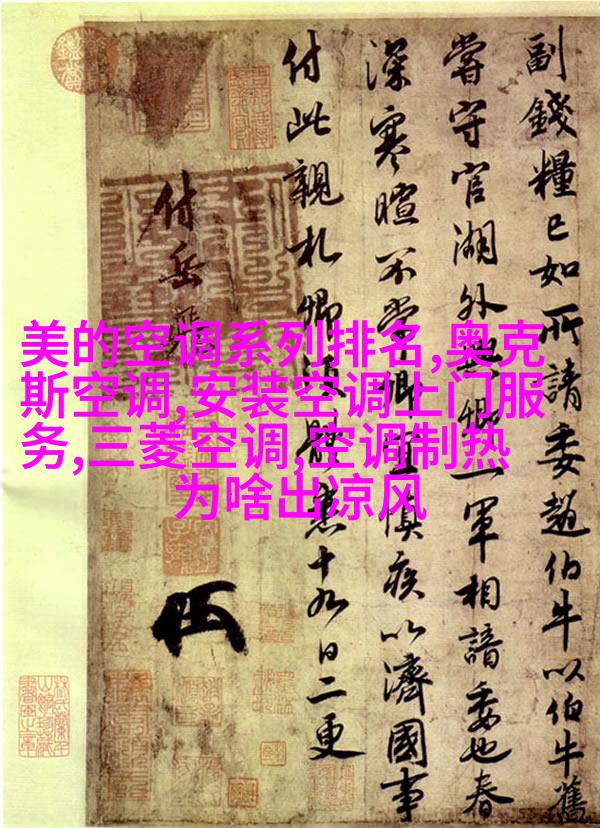 美的空调系列排名,奥克
斯空调,安装空调上门服
务,三菱空调,空调制热
为啥出凉风
副錢糧已如所請委趙伯牛以伯牛舊
嘗守官湖外與卿一軍相諳委也春
深寒暄不常卿宜慎疾以濟國事
付此親札卿須體悉十九日二更
付岳飛